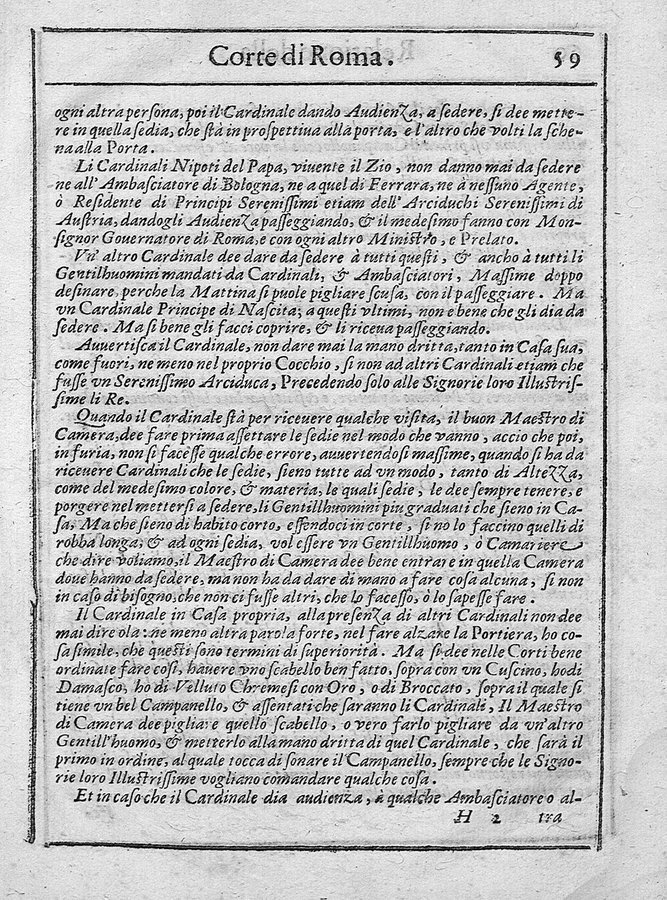 Corte di Roma. 59
ogni altra persona, poi il Cardinale dando Audienza, a sedere, si dee mette-
re in quella sedia, che stà in prospettiua alla porta, e l'altro che volti la sche-
na alla Porta.
Li Cardinali Nipoti del Papa, viuente il Zio, non danno mai da sedere
ne all' Ambasciatore di Bologna, ne a quel di Ferrara, ne à nessuno Agente,
ò Residente di Principi Serenissimi etiam dell' Arciduchi Serenissimi di
Austria, dandogli Audienza passeggiando, & il medesimo fanno con Mon-
signor Gouernatore di Roma, e con ogni altro Ministro, e Prelato.
Vn' altro Cardinale dee dare da sedere à tutti questi, & ancho à tutti li
Gentilhuomini mandati da Cardinali, & Ambasciatori, Massime doppo
desinare, perche la Mattina si puole pigliare scusa, con il passeggiare. Ma
vn Cardinale Principe di Nascita; a questi vltimi, non e bene che gli dia da
sedere. Ma si bene gli facci coprire, & li riceua passeggiando.
Auuertisca il Cardinale, non dare mai la mano dritta, tanto in Casa sua,
come fuori, ne meno nel proprio Cocchio, si non ad altri Cardinali etiam che
fusse vn Serenissimo Arciduca, Precedendo solo alle Signorie loro Illustris-
sime li Re.
Quando il Cardinale stà per riceuere qualche visita, il buon Maestro di
Camera, dee fare prima assettare le sedie nel modo che vanno, accio che poi,
in furia, non si facesse qualche errore, auuertendosi massime, quando si ha da
riceuere Cardinali che le sedie, sieno tutte ad vn modo, tanto di Altezza,
come del medesimo colore, & materia, le quali sedie, le dee sempre tenere, e
porgere nel mettersi a sedere, li Gentillhuomini piu graduati che sieno in Ca-
sa, Ma che sieno di habito corto, essendoci in corte, si no lo faccino quelli di
robba longa, & ad ogni sedia, vol essere vn Gentillhuomo, ò Camariere
che dire vogliamo, il Maestro di Camera dee bene entrare in quella Camera
doue hanno da sedere, ma non ha da dare di mano a fare cosa alcuna, si non
in caso di bisogno, che non ci fusse altri, che lo facesso, ò lo sapesse fare.
Il Cardinale in Casa propria, alla presenza di altri Cardinali non dee
mai dire ola: ne meno altra parola forte, nel fare alzare la Portiera, ho co-
sa simile, che questi sono termini di superiorità. Ma si dee nelle Corti bene
ordinate fare cosi, hauere vno scabello ben fatto, sopra con vn Cuscino, ho di
Damasco, ho di Velluto Chremesi con Oro, o di Broccato, sopra il quale si
tiene vn bel Campanello, & assentati che saranno li Cardinali, Il Maestro
di Camera dee pigliare quello scabello, o vero farlo pigliare da vn' altro
Gentill'huomo, & metterlo alla mano dritta di quel Cardinale, che sarà il
primo in ordine, al quale tocca di sonare il Campanello, sempre che le Signo-
rie loro Illustrissime vogliano comandare qualche cosa.
Et in caso che il Cardinale dia audienza, à qualche Ambasciatore o al-
H 2 tra